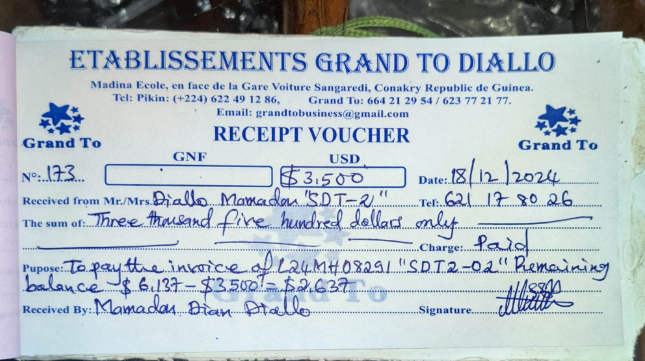 ETABLISSEMENTS GRAND TO DIALLO
Madina Ecole, en face de la Gare Voiture Sangaredi, Conakry Republic de Guinea.
Tel: Pikin: (+224) 622 49 12 86, Grand To: 664 21 29 54 / 623 77 21 77.
Email: grandtobusiness@gmail.com
Grand To
RECEIPT VOUCHER
Grand To
GNF USD
Nº: 173 $3,500 Date: 18/12/2024
Received from Mr./Mrs. Diallo Mamadou "SDT-2" Tel: 621 17 80 26
The sum of: Three thousand five hundred dollars only
Charge: Paid
Pupose: To pay the invoice of L24MH08291 "SDT2-02" Remaining
balance - $6,137 - $3500 = $2,637
Grand To
Received By: Mamadou Dian Diallo Signature